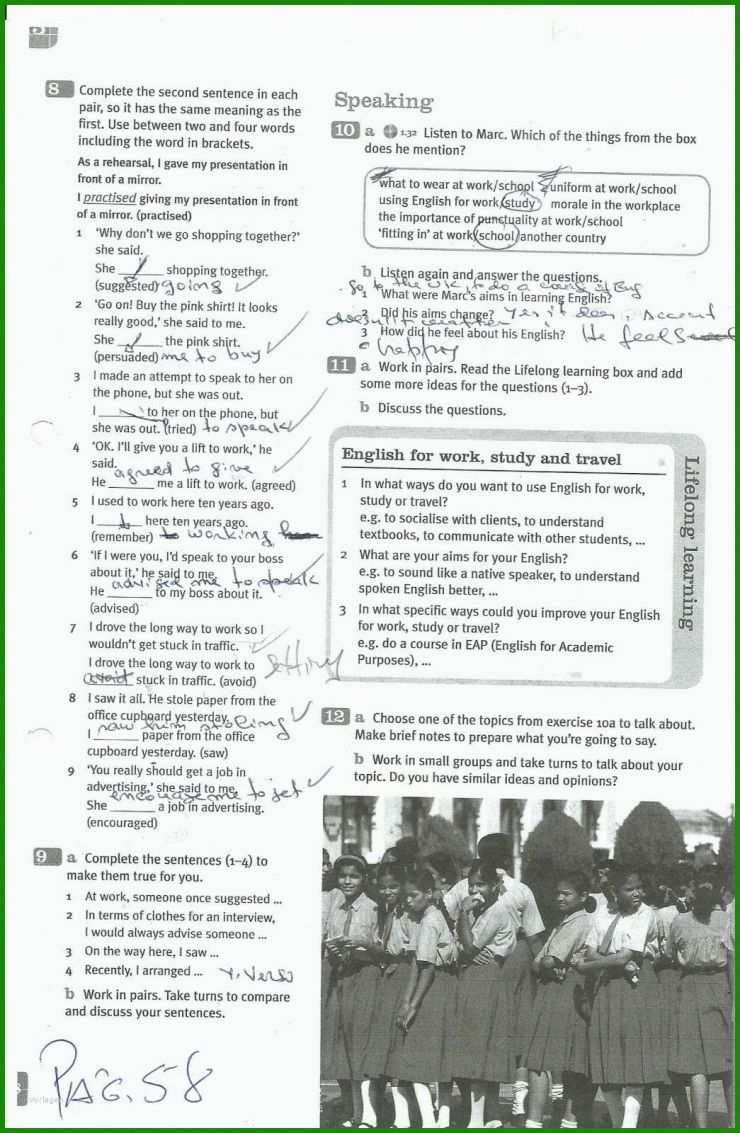 8 Complete the second sentence in each
pair, so it has the same meaning as the
first. Use between two and four words
including the word in brackets.
As a rehearsal, I gave my presentation in
front of a mirror.
I practised giving my presentation in front
of a mirror. (practised)
1 ‘Why don't we go shopping together?’
she said.
She ______ shopping together.
(suggested) going
2 ‘Go on! Buy the pink shirt! It looks
really good,’ she said to me.
She ______ the pink shirt.
(persuaded) me to buy
3 I made an attempt to speak to her on
the phone, but she was out.
I ______ to her on the phone, but
she was out. (tried) to speak
4 ‘OK. I'll give you a lift to work,’ he
said.
agreed to give
He ______ me a lift to work. (agreed)
5 I used to work here ten years ago.
I ______ here ten years ago.
(remember) working
6 ‘If I were you, I'd speak to your boss
about it,’ he said to me.
advised me to speak
He ______ to my boss about it.
(advised)
7 I drove the long way to work so I
wouldn't get stuck in traffic.
I drove the long way to work to
avoid stuck in traffic. (avoid)
8 I saw it all. He stole paper from the
office cupboard yesterday.
saw him stoling
I ______ paper from the office
cupboard yesterday. (saw)
9 ‘You really should get a job in
advertising,’ she said to me.
encourage me to get
She ______ a job in advertising.
(encouraged)
9 a Complete the sentences (1–4) to
make them true for you.
1 At work, someone once suggested ...
2 In terms of clothes for an interview,
I would always advise someone ...
3 On the way here, I saw ...
4 Recently, I arranged ...
b Work in pairs. Take turns to compare
and discuss your sentences.
PAG. 58
Vorlagen
Speaking
10 a 1.32 Listen to Marc. Which of the things from the box
does he mention?
what to wear at work/school uniform at work/school
using English for work/study morale in the workplace
the importance of punctuality at work/school
‘fitting in’ at work/school/another country
b Listen again and answer the questions.
go to the UK, to do a
1 What were Marc's aims in learning English?
2 Did his aims change? Yes it does. Accent
doesn't
3 How did he feel about his English? He feels
happy
11 a Work in pairs. Read the Lifelong learning box and add
some more ideas for the questions (1–3).
b Discuss the questions.
English for work, study and travel
Lifelong learning
1 In what ways do you want to use English for work,
study or travel?
e.g. to socialise with clients, to understand
textbooks, to communicate with other students, ...
2 What are your aims for your English?
e.g. to sound like a native speaker, to understand
spoken English better, ...
3 In what specific ways could you improve your English
for work, study or travel?
e.g. do a course in EAP (English for Academic
Purposes), ...
12 a Choose one of the topics from exercise 10a to talk about.
Make brief notes to prepare what you're going to say.
b Work in small groups and take turns to talk about your
topic. Do you have similar ideas and opinions?